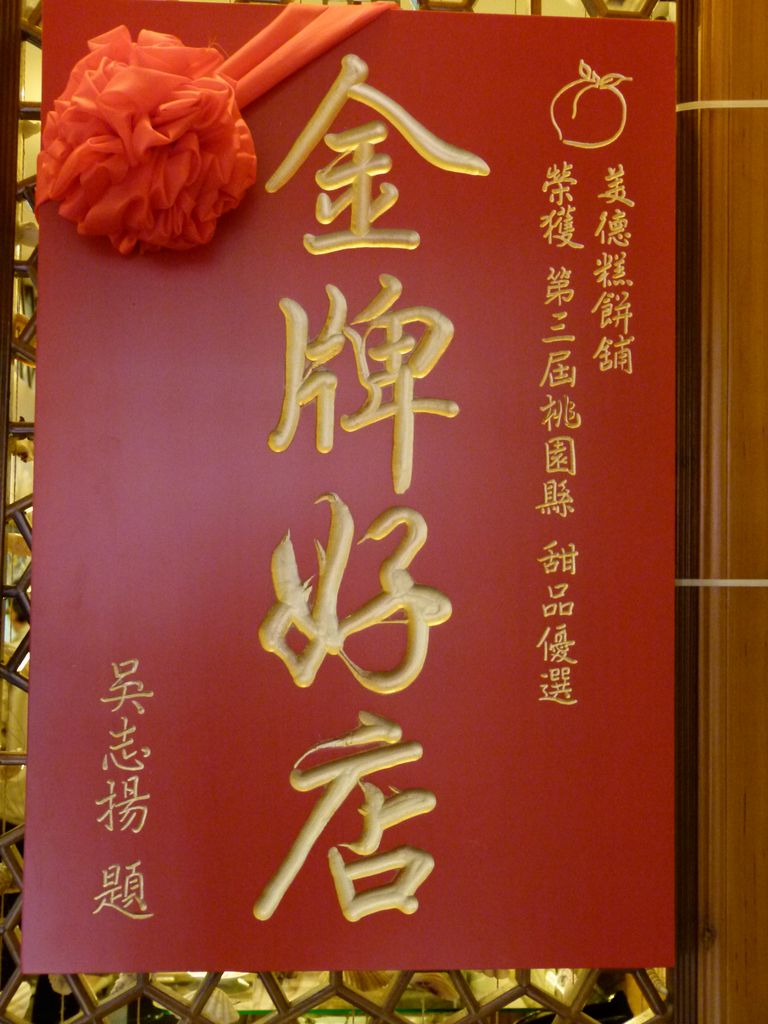 美德糕餅舖
榮獲 第三屆桃園縣 甜品優選
金牌好店
吳志揚 題